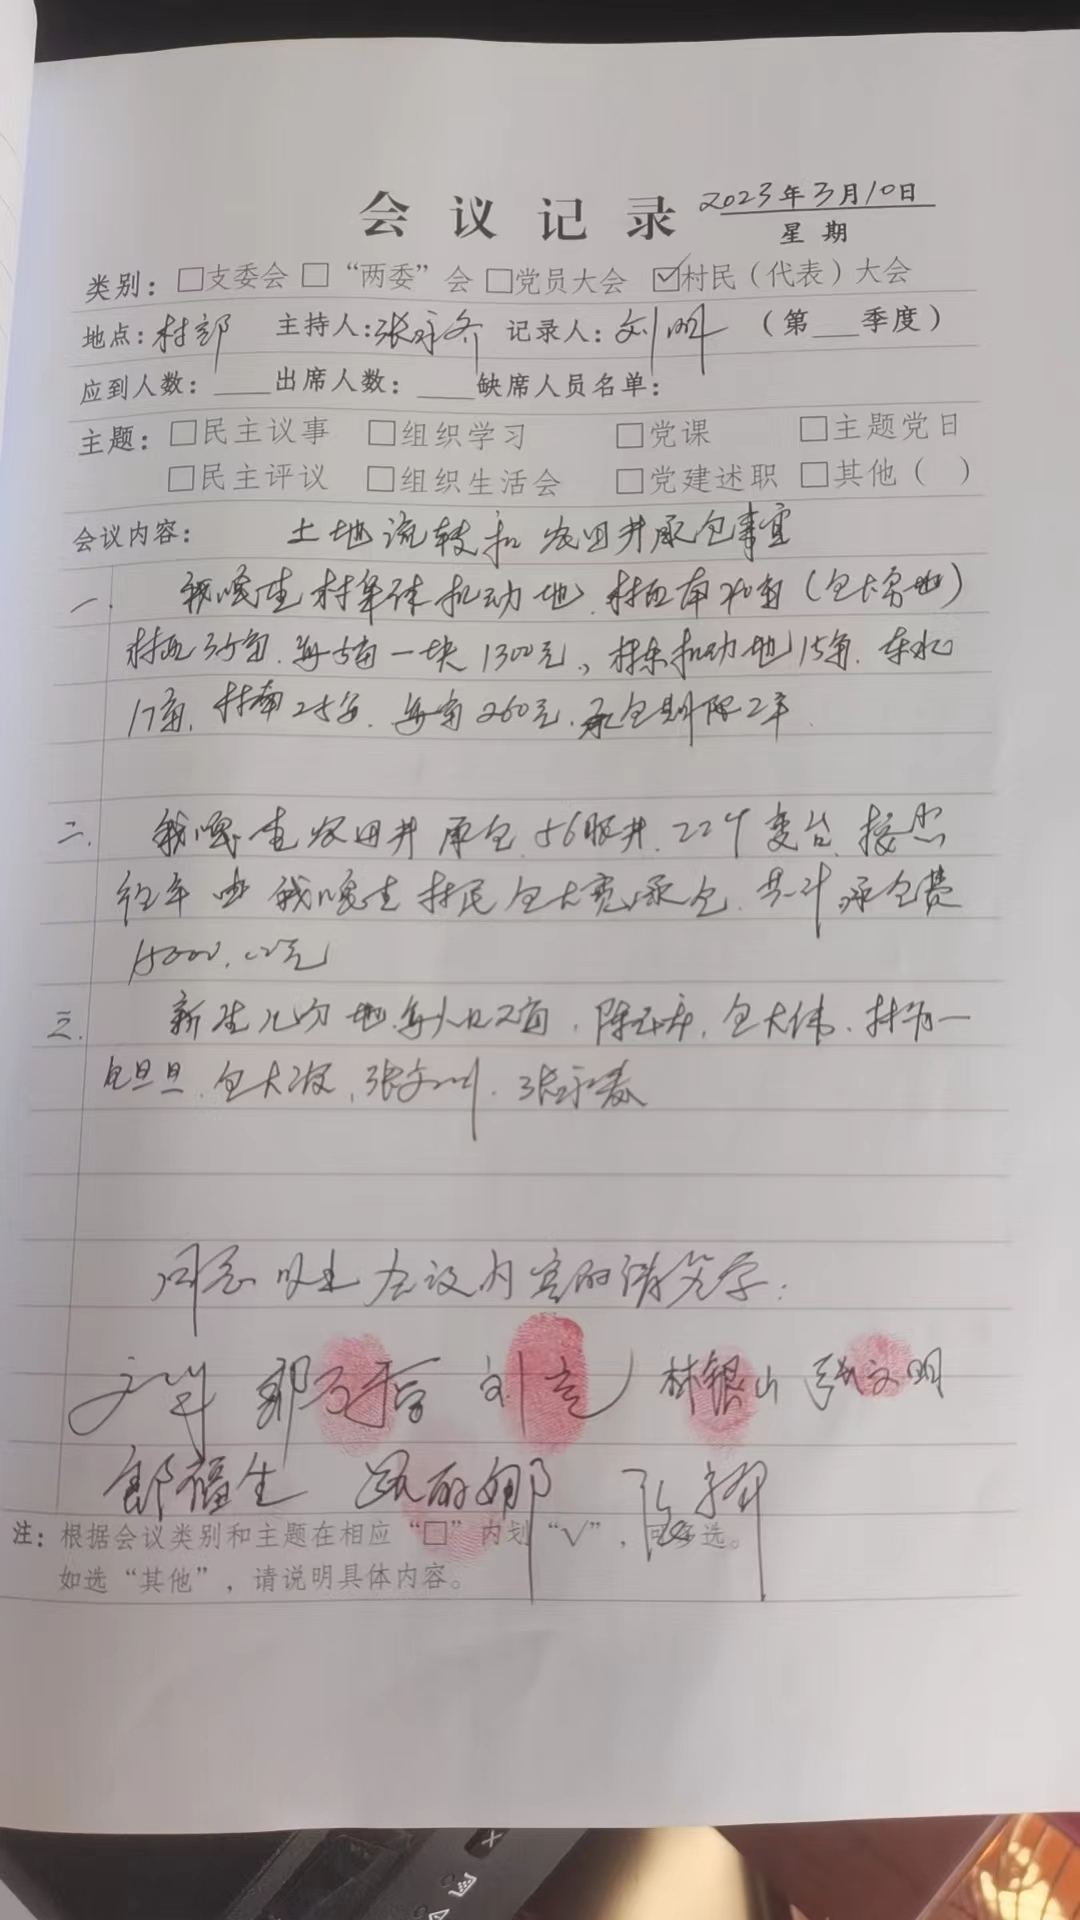 会议记录 2023年3月10日
星期
类别：□支委会 □“两委”会 □党员大会 ☑村民（代表）大会
地点：村部 主持人：张 记录人：刘明 （第__季度）
应到人数：____出席人数：____缺席人员名单：
主题：□民主议事 □组织学习 □党课 □主题党日
□民主评议 □组织生活会 □党建述职 □其他（ ）
会议内容： 土地流转和农田井承包事宜
一. 我嘎生村集体机动地.村西南 亩（包大勇地）
村西35亩.每5亩一块1300元，村东机动地15亩.东北
17亩.村南25亩.每亩260元.承包期限2年.
二. 我嘎生农田井承包.56眼井.22个变台.按照
往年由我嘎生村民包大亮承包.共计承包费
元
三. 新生儿分地.每人口2亩. 包大伟.
包旦旦.包大 .张文川.张永春
同意以上会议内容的请签字：
刘亮 林银山 张文明
郎福生 丽娜
注：根据会议类别和主题在相应“□”内划“√”， 选。
如选“其他”，请说明具体内容。